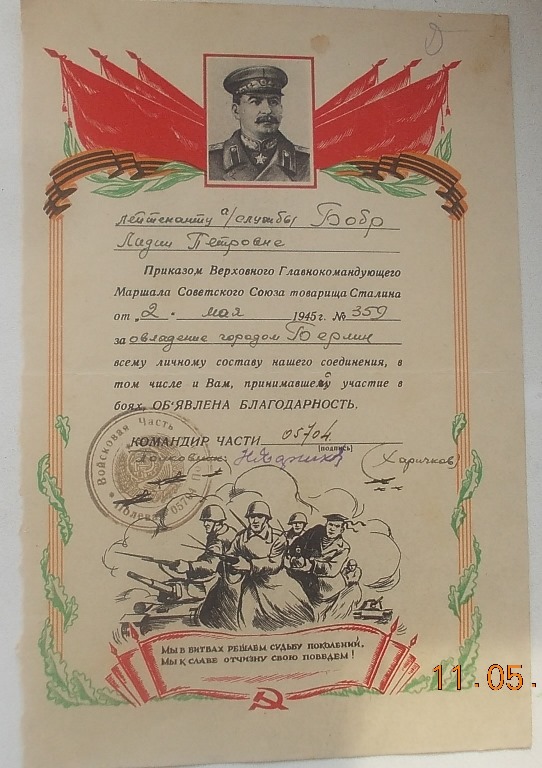 лейтенанту а/службы Бобр
Лидии Петровне
Приказом Верховного Главнокомандующего
Маршала Советского Союза товарища Сталина
от „2. мая 1945 г. № 359
за овладение городом Берлин
всему личному составу нашего соединения, в
том числе и Вам, принимавшей участие в
боях, ОБ'ЯВЛЕНА БЛАГОДАРНОСТЬ.
КОМАНДИР ЧАСТИ 05704
(подпись)
Полковник
(Харичков)
Войсковая Часть
Полевая
МЫ В БИТВАХ РЕШАЕМ СУДЬБУ ПОКОЛЕНИЙ,
МЫ К СЛАВЕ ОТЧИЗНУ СВОЮ ПОВЕДЕМ!
11.05.